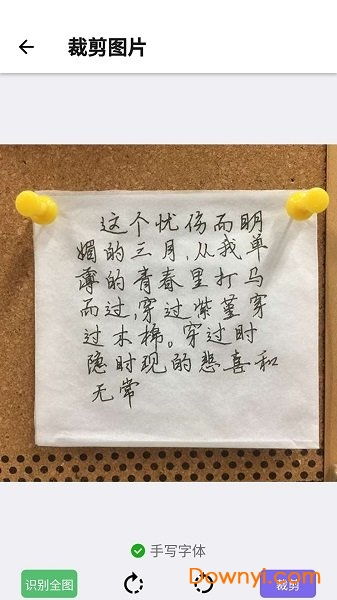 裁剪图片
这个忧伤而明
媚的三月,从我单
薄的青春里打马
而过,穿过紫堇穿
过木棉。穿过时
隐时现的悲喜和
无常
手写字体
识别全图
裁剪
Downyi.com